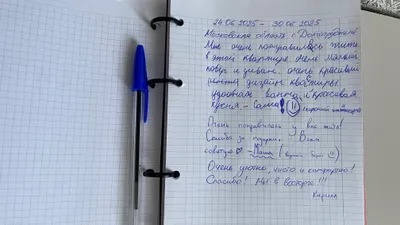 24.06.2025 - 30.06.2025
Московская область г. Долгопрудный
Мне очень понравилось жить
в этой квартире. Мне
ковёр и диван. очень красивый
дизайн квартиры!
удобная ванна, и красивая
кухня - Саша! 11
Очень понравилось у вас жить!
Спасибо за подарки. Всем
советую - Маша
Очень уютно, чисто и комфортно!
Спасибо! Мы в восторге!!!
Кирилл